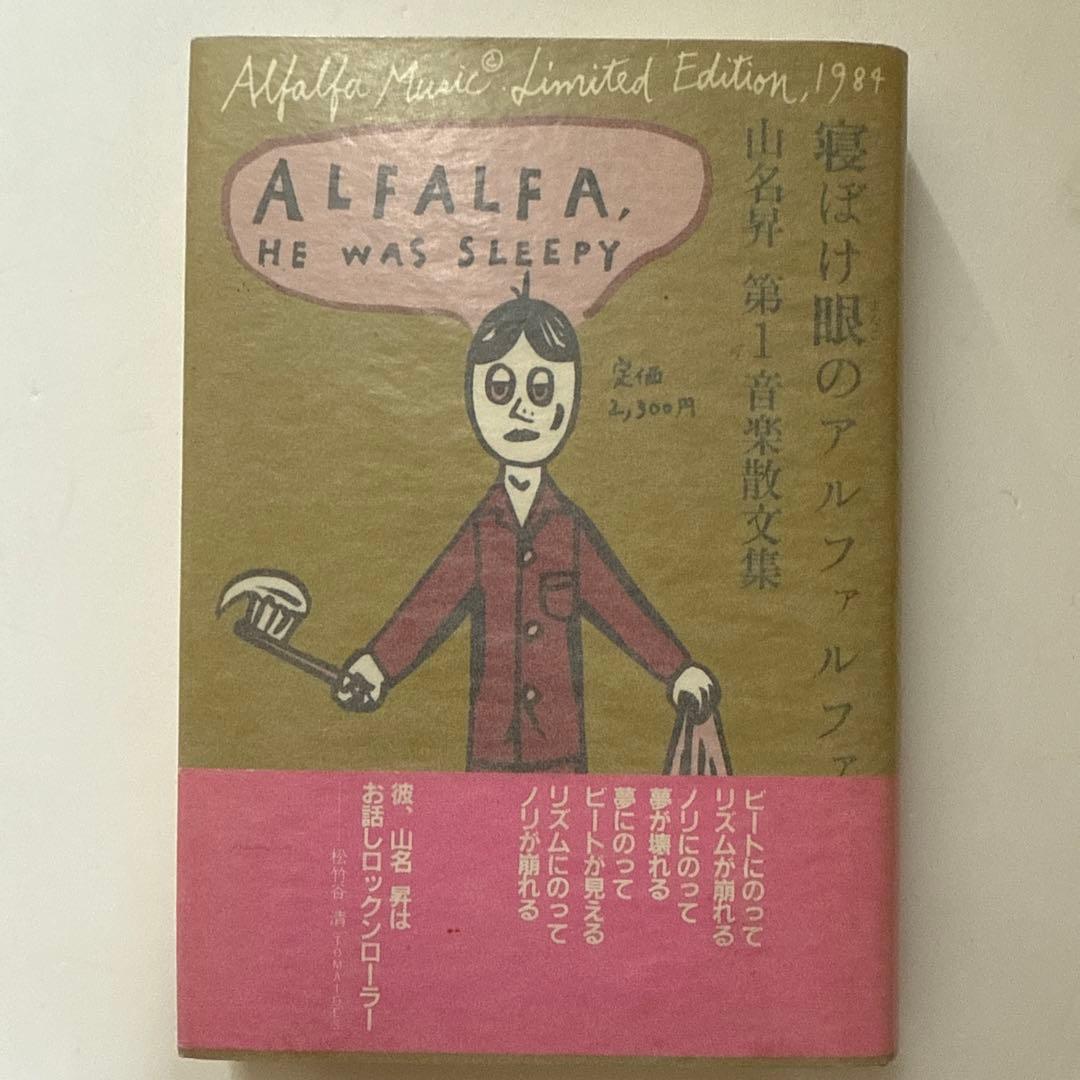 Alfalfa Music Ⓟ Limited Edition, 1984
ALFALFA,
HE WAS SLEEPY
寝ぼけ眼のアルファルファ
山名昇 第1音楽散文集
定価
2,300円
ビートにのって
リズムが崩れる
ノリにのって
夢が壊れる
夢にのって
ビートが見える
リズムにのって
ノリが崩れる
彼、山名 昇は
お話しロックンローラー
松竹谷 清